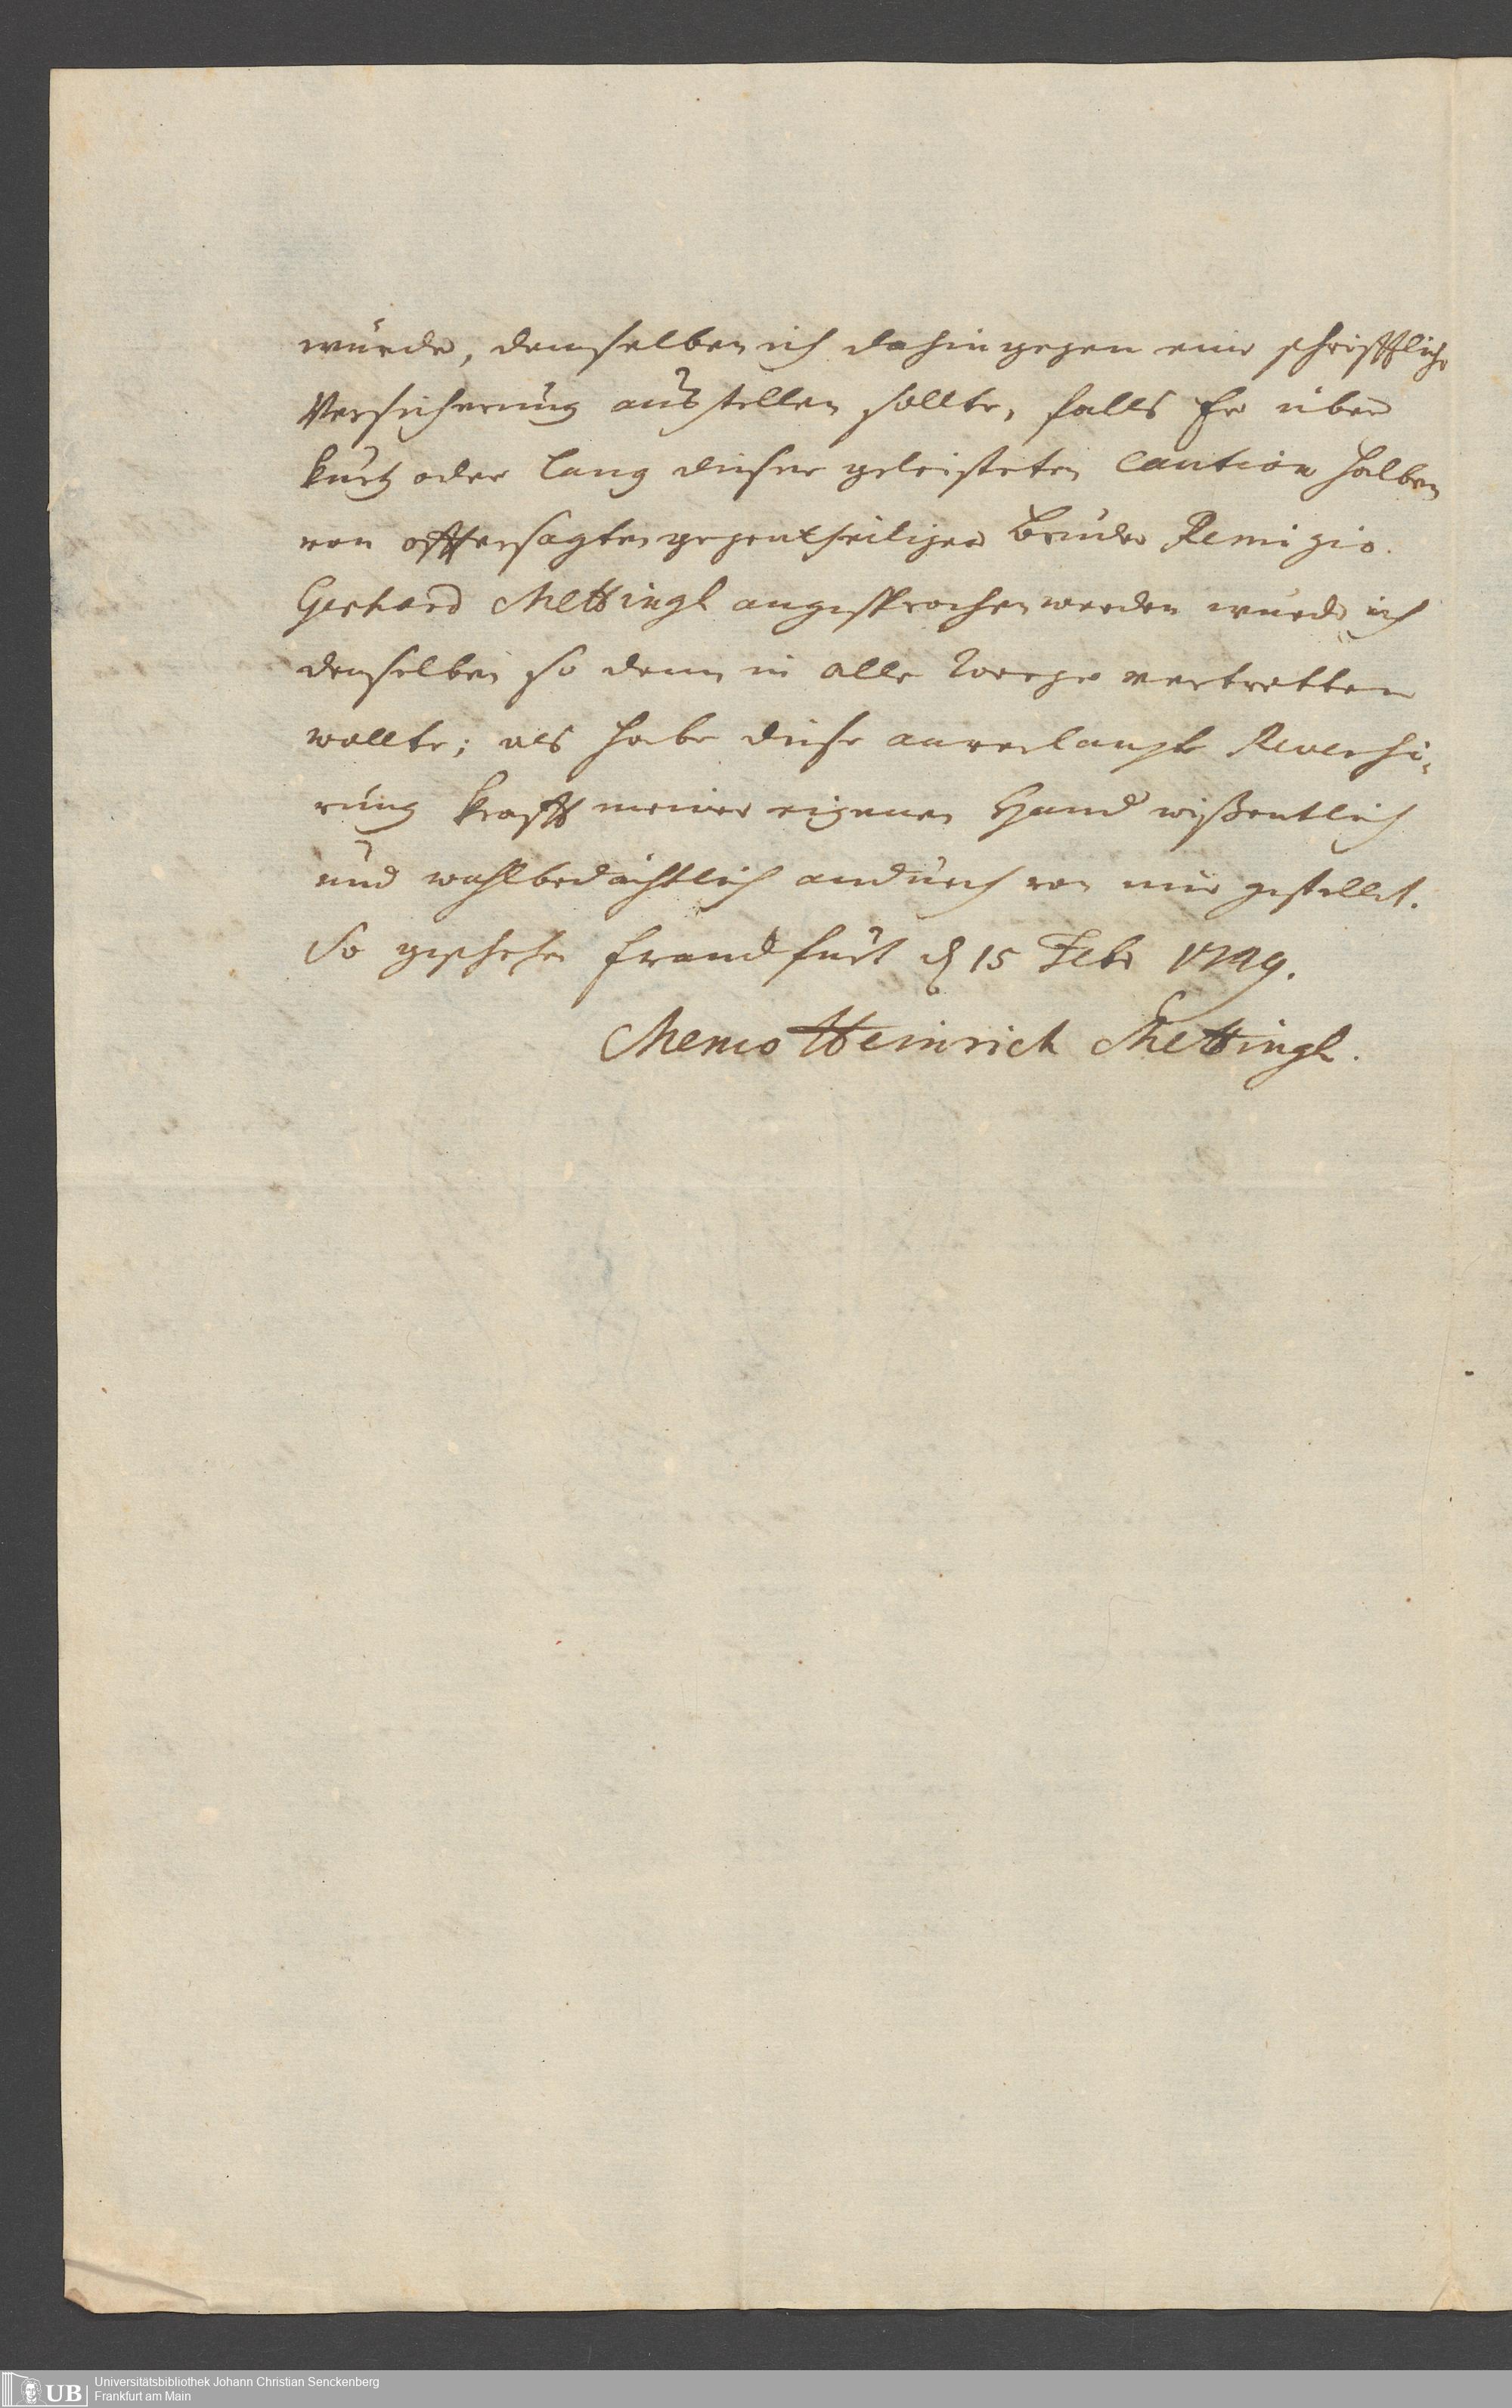 würde, demselben ich dahingegen eine schrifftliche
Versicherung ausstellen sollte, falls Er über
kurtz oder lang dieser geleisteten Caution halben
von offtersagten gegentheiligen Bruder Remigio
Gerhard Mettingh angesprochen werden würde, ich
denselben so dann in alle Weege vertretten
wollte; als habe diese anverlangte Reversi-
rung krafft meiner eigenen Hand wißentlich
und wohlbedächtlich andurch von mir gestellet.
So geschehen Franckfurt d 15 Febr 1749.
Menco Heinrich Mettingh.
UB
Universitätsbibliothek Johann Christian Senckenberg
Frankfurt am Main